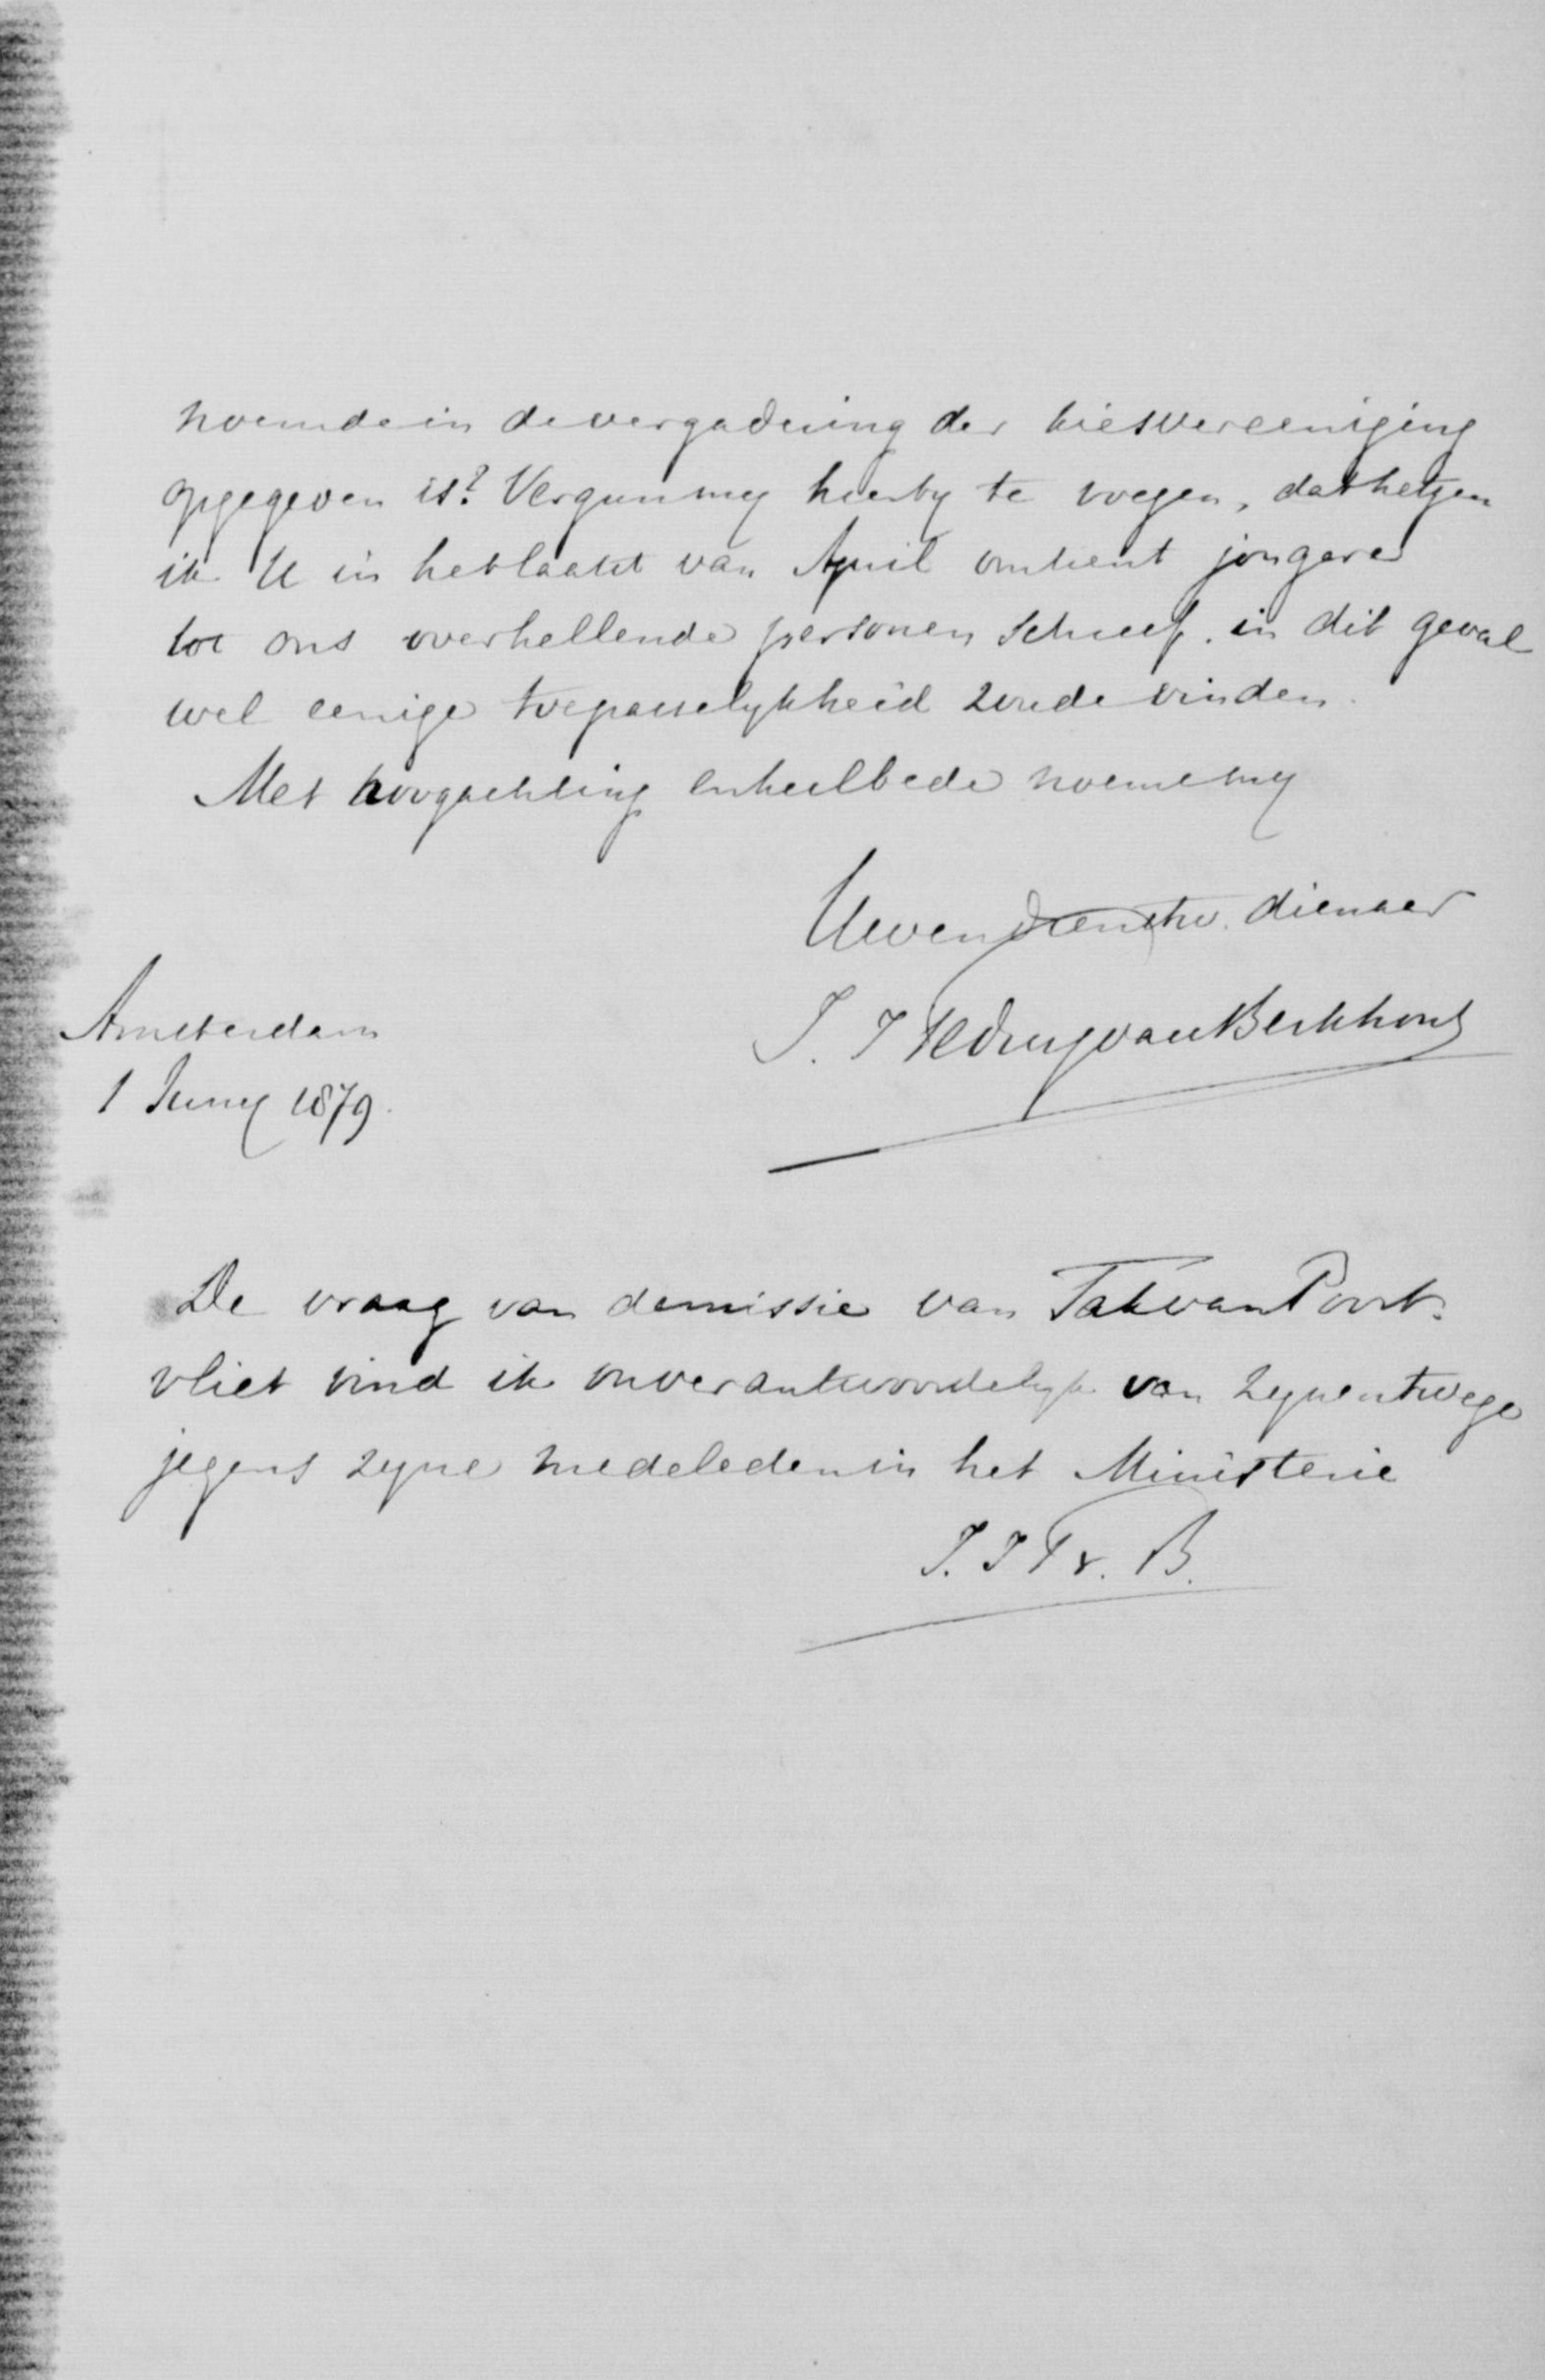 noemde in de vergadering der kiesvereeniging
opgegeven is? Vergun my hierby te voegen, dat hetgeen
ik U in het laatst van April omtrent jongere
tot ons overhellende personen schreef. in dit geval
wel eenige toepasselykheid zoude vinden.
Met hoogachting en heilbede noem ik my
Uwen dienstw. dienaar
J. J Teding van Berkhout
Amsterdam
1 Juny 1879.
De vraag van demissie van Tak van Poort-
vliet vind ik onverantwoordelyk van zynentwege
jegens zyne medeleden in het Ministerie
J. J T v. B.